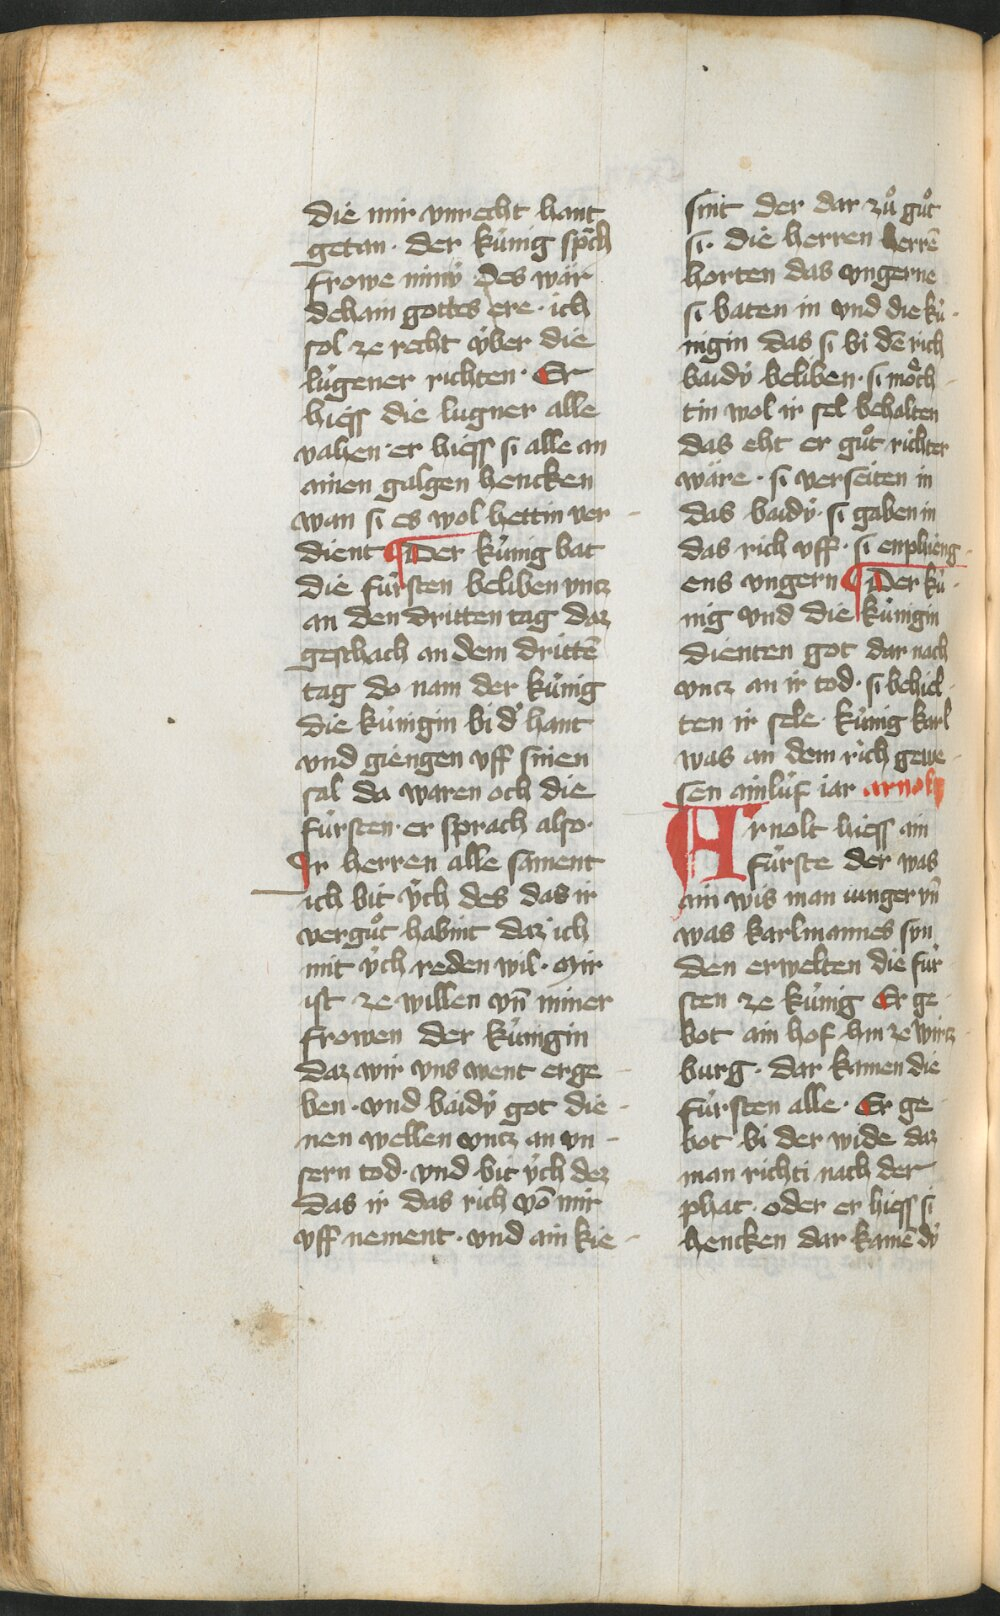 die mir vnrecht hant
getan · der ku̍nig sp̄ch
frowe minÿ des wär
dehain gottes ere · ich
sol ze recht ÿber die
lu̍gener richten · Er
hiess die lugner alle
vahen · er hiess si alle an
ainen galgen hencken
wan si es wol hettin ver -
dient ¶ Der ku̍nig bat
die fu̍rsten beliben vncz
an den dritten tag daz
geschach an dem drittē
tag do nam der ku̍nig
die ku̍nigin bi d̓ hant
vnd giengen vff sinen
sal da waren och die
fu̍rsten · er sprach also ·
Ir herren alle sament
ich bit u̍ch des das ir
verguͦt habint daz ich
mit u̍ch reden wil · Mir
ist ze willen vn̄ miner
frowen der ku̍nigin
daz wir vns went erge -
ben · vnd baidÿ got die -
nen wellen vncz an vn -
sern tod · vnd bit u̍ch dez
das ir das rich vō mir
vff nement · vnd ain kie -
sint der dar zuͦ guͦt
si · die herren herrē
horten das vngerne
si baten in vnd die ku̍ -
nigin das si bi dē rich
baidÿ beliben · si moͤch -
tin wol ir sel behalten
das eht er guͦt richter
wäre · si verseiten in
das baidÿ · si gaben in
das rich vff · si enphieng -
ens vngern ¶ Der ku̍ -
nig vnd die ku̍nigin
dienten got dar nach
vncz an ir tod · si behiel -
ten ir sele · ku̍nig karl
was an dem rich gewe -
sen ainlu̍f iar arnolt
Arnolt hiess ain
fu̍rste der was
ain wis man iunger vn̄
was karlmannes syn
den erwelten die fu̍r -
sten ze ku̍nig Er ge -
bot ain hof hin ze wircz -
burg · dar kamen die
fu̍rsten alle · Er ge -
bot bi der wide daz
man richti nach der
phat · oder er hiess si
hencken dar kamē dÿ